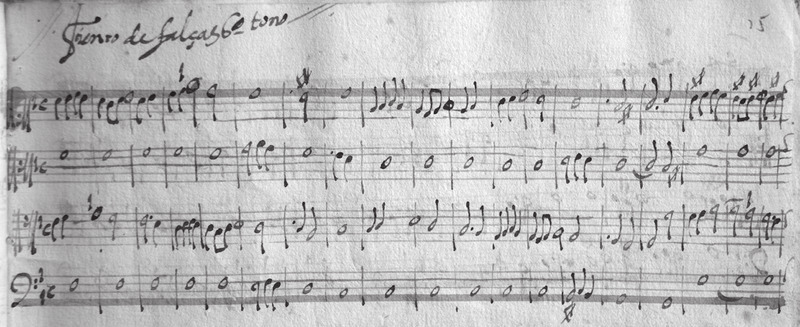 Tiento de falças 6º tono
15